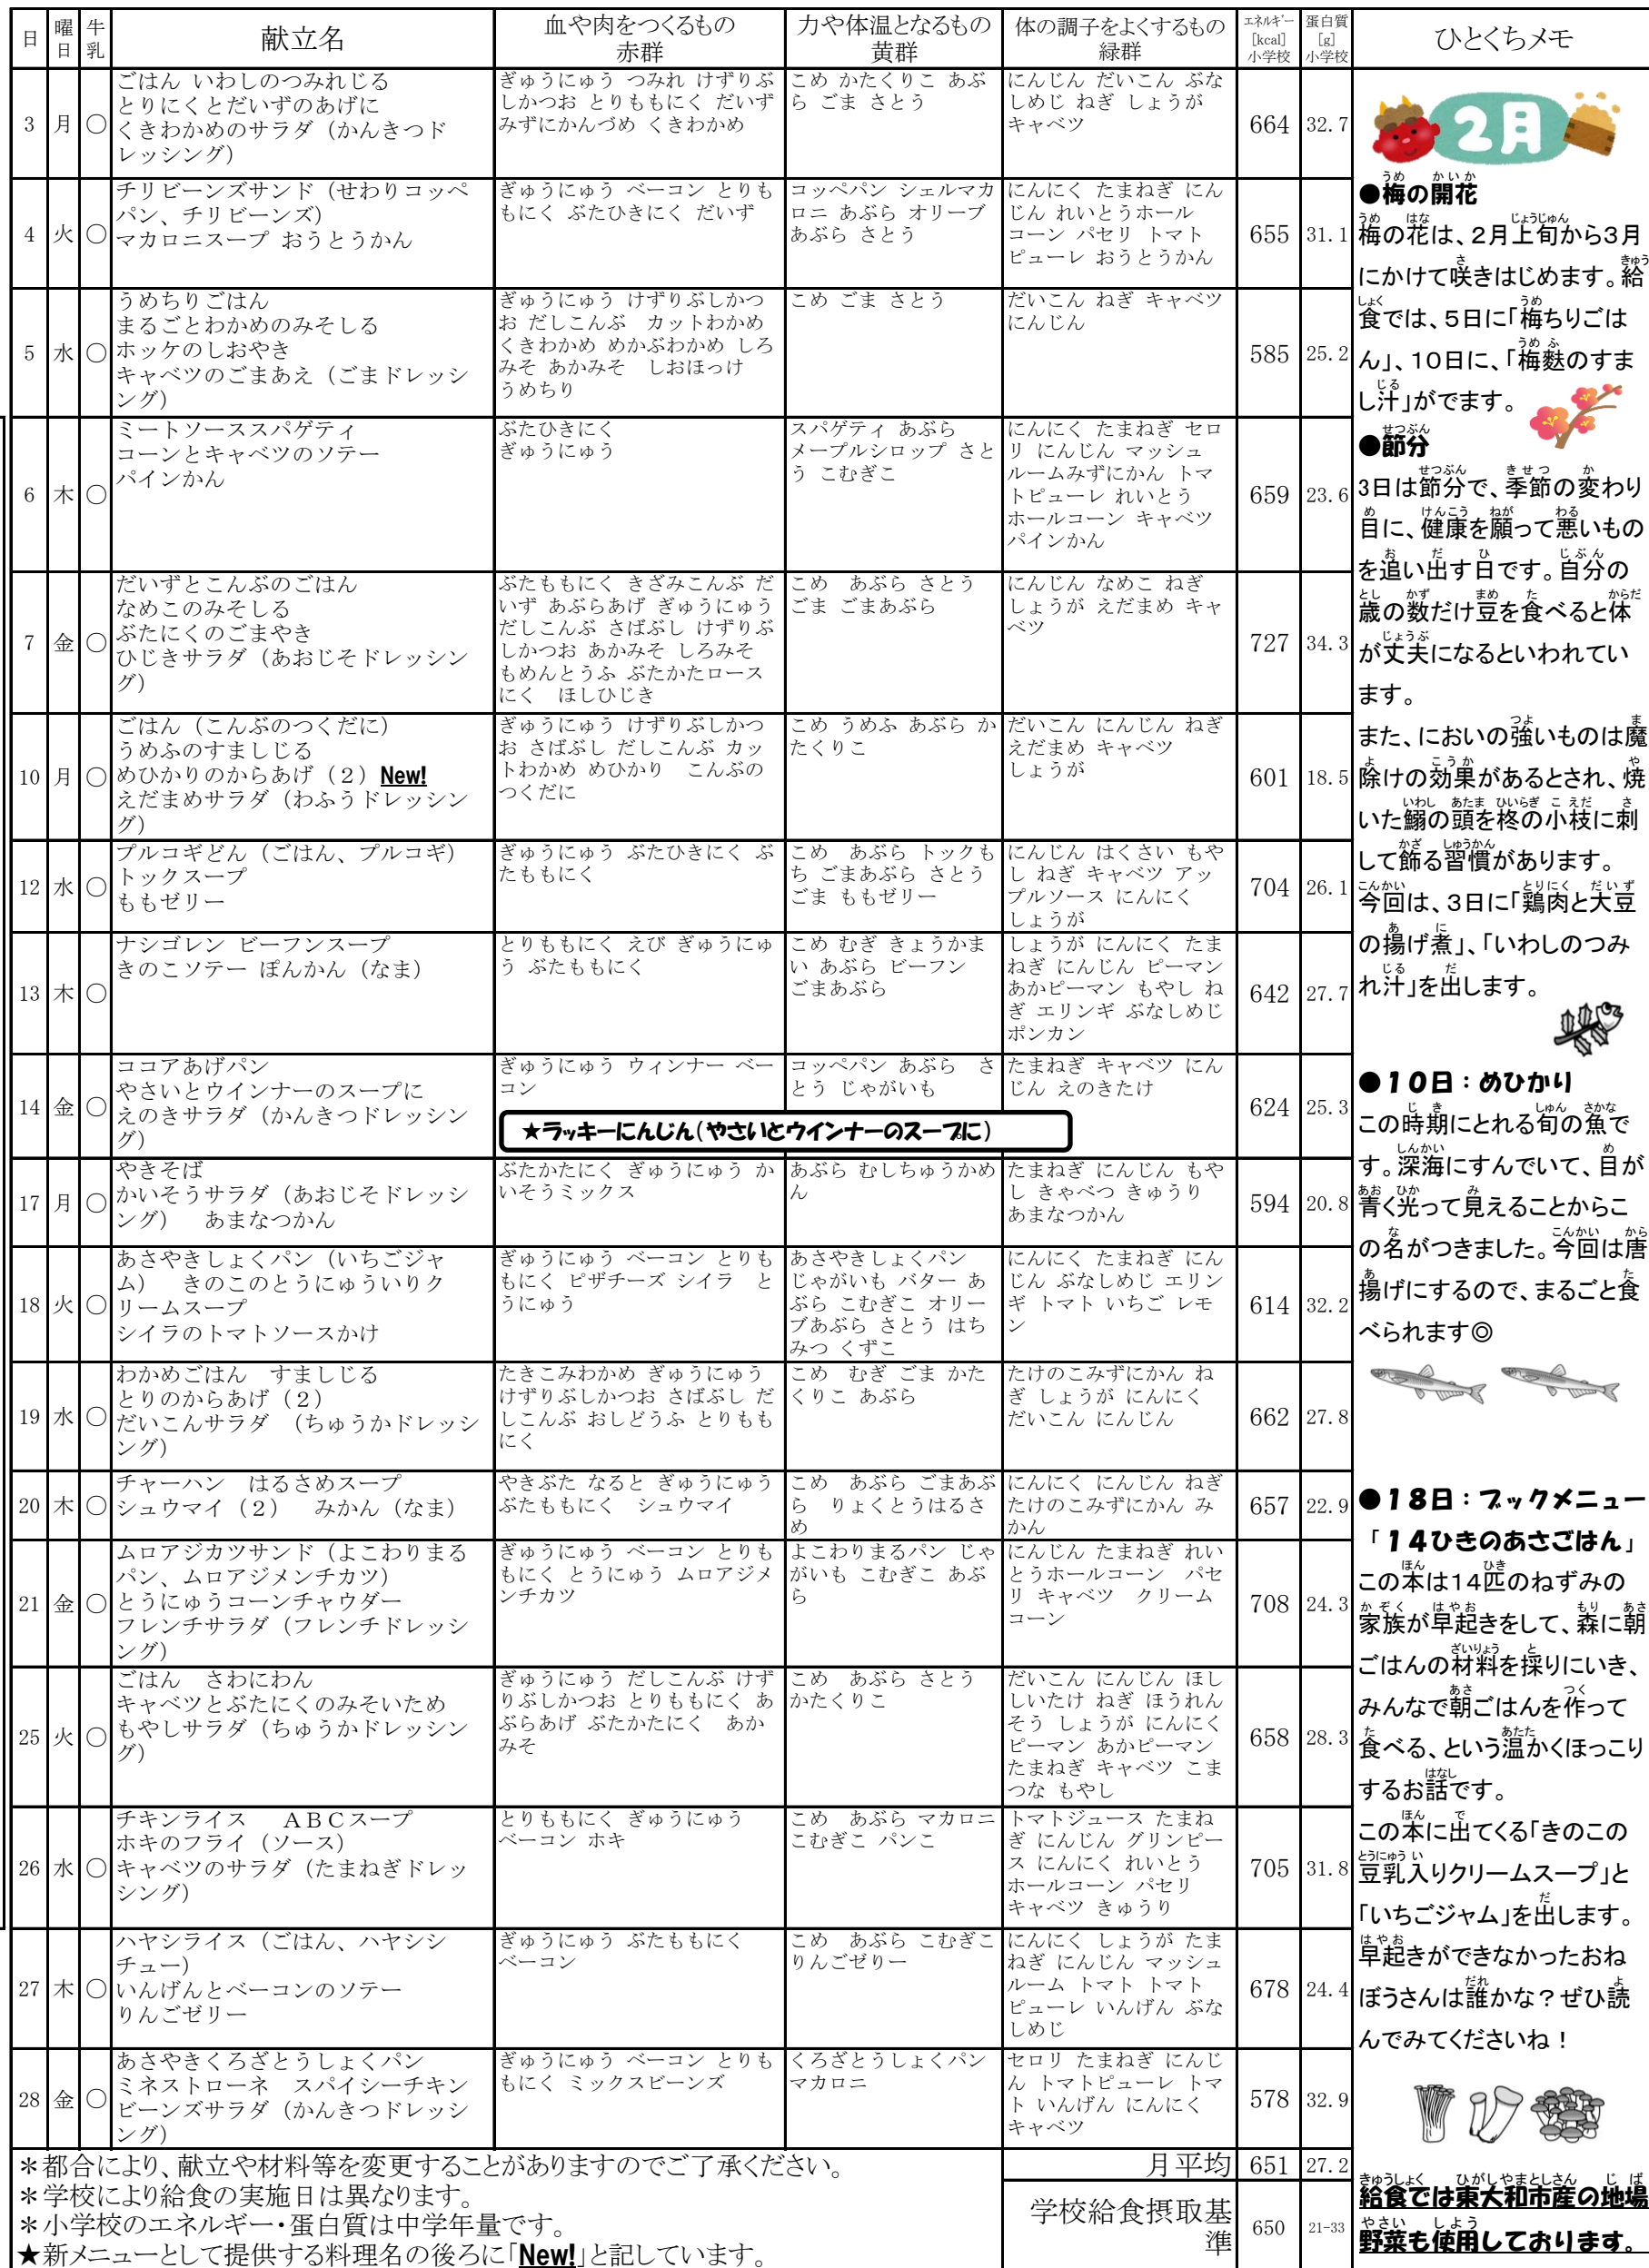 日 曜日 牛乳 献立名 血や肉をつくるもの 赤群 力や体温となるもの 黄群 体の調子をよくするもの 緑群 エネルギー [kcal] 小学校 蛋白質 [g] 小学校 ひとくちメモ
3 月 ○
ごはん いわしのつみれじる
とりにくとだいずのあげに
くきわかめのサラダ（かんきつド
レッシング）
ぎゅうにゅう つみれ けずりぶ
しかつお とりももにく だいず
みずにかんづめ くきわかめ
こめ かたくりこ あぶ
ら ごま さとう
にんじん だいこん ぶな
しめじ ねぎ しょうが
キャベツ
664 32.7
4 火 ○
チリビーンズサンド（せわりコッペ
パン、チリビーンズ）
マカロニスープ おうとうかん
ぎゅうにゅう ベーコン とりも
もにく ぶたひきにく だいず
コッペパン シェルマカ
ロニ あぶら オリーブ
あぶら さとう
にんにく たまねぎ にん
じん れいとうホール
コーン パセリ トマト
ピューレ おうとうかん
655 31.1
5 水 ○
うめちりごはん
まるごとわかめのみそしる
ホッケのしおやき
キャベツのごまあえ（ごまドレッシ
ング）
ぎゅうにゅう けずりぶしかつ
お だしこんぶ カットわかめ
くきわかめ めかぶわかめ しろ
みそ あかみそ しおほっけ
うめちり
こめ ごま さとう
だいこん ねぎ キャベツ
にんじん
585 25.2
6 木 ○
ミートソーススパゲティ
コーンとキャベツのソテー
パインかん
ぶたひきにく
ぎゅうにゅう
スパゲティ あぶら
メープルシロップ さと
う こむぎこ
にんにく たまねぎ セロ
リ にんじん マッシュ
ルームみずにかん トマ
トピューレ れいとう
ホールコーン キャベツ
パインかん
659 23.6
7 金 ○
だいずとこんぶのごはん
なめこのみそしる
ぶたにくのごまやき
ひじきサラダ（あおじそドレッシン
グ）
ぶたももにく きざみこんぶ だ
いず あぶらあげ ぎゅうにゅう
だしこんぶ さばぶし けずりぶ
しかつお あかみそ しろみそ
もめんとうふ ぶたかたロース
にく ほしひじき
こめ あぶら さとう
ごま ごまあぶら
にんじん なめこ ねぎ
しょうが えだまめ キャ
ベツ
727 34.3
10 月 ○
ごはん（こんぶのつくだに）
うめふのすましじる
めひかりのからあげ（2）New!
えだまめサラダ（わふうドレッシン
グ）
ぎゅうにゅう けずりぶしかつ
お さばぶし だしこんぶ カッ
トわかめ めひかり こんぶの
つくだに
こめ うめふ あぶら か
たくりこ
だいこん にんじん ねぎ
えだまめ キャベツ
しょうが
601 18.5
12 水 ○
プルコギどん（ごはん、プルコギ）
トックスープ
ももゼリー
ぎゅうにゅう ぶたひきにく ぶ
たももにく
こめ あぶら トックも
ち ごまあぶら さとう
ごま ももゼリー
にんじん はくさい もや
し ねぎ キャベツ アッ
プルソース にんにく
しょうが
704 26.1
13 木 ○
ナシゴレン ビーフンスープ
きのこソテー ぽんかん（なま）
とりももにく えび ぎゅうにゅ
う ぶたももにく
こめ むぎ きょうかま
い あぶら ビーフン
ごまあぶら
しょうが にんにく たま
ねぎ にんじん ピーマン
あかピーマン もやし ね
ぎ エリンギ ぶなしめじ
ポンカン
642 27.7
14 金 ○
ココアあげパン
やさいとウインナーのスープに
えのきサラダ（かんきつドレッシン
グ）
ぎゅうにゅう ウィンナー ベー
コン
コッペパン あぶら さ
とう じゃがいも
たまねぎ キャベツ にん
じん えのきたけ
★ラッキーにんじん（やさいとウインナーのスープに）
624 25.3
17 月 ○
やきそば
かいそうサラダ（あおじそドレッシ
ング） あまなつかん
ぶたかたにく ぎゅうにゅう か
いそうミックス
あぶら むしちゅうかめ
ん
たまねぎ にんじん もや
し きゃべつ きゅうり
あまなつかん
594 20.8
18 火 ○
あさやきしょくパン（いちごジャ
ム） きのこのとうにゅういりク
リームスープ
シイラのトマトソースかけ
ぎゅうにゅう ベーコン とりも
もにく ピザチーズ シイラ と
うにゅう
あさやきしょくパン
じゃがいも バター あ
ぶら こむぎこ オリー
ブあぶら さとう はち
みつ くずこ
にんにく たまねぎ にん
じん ぶなしめじ エリン
ギ トマト いちご レモ
ン
614 32.2
19 水 ○
わかめごはん すましじる
とりのからあげ（2）
だいこんサラダ （ちゅうかドレッシ
ング）
たきこみわかめ ぎゅうにゅう
けずりぶしかつお さばぶし だ
しこんぶ おしどうふ とりもも
にく
こめ むぎ ごま かた
くりこ あぶら
たけのこみずにかん ね
ぎ しょうが にんにく
だいこん にんじん
662 27.8
20 木 ○
チャーハン はるさめスープ
シュウマイ（2） みかん（なま）
やきぶた なると ぎゅうにゅう
ぶたももにく シュウマイ
こめ あぶら ごまあぶ
ら りょくとうはるさ
め
にんにく にんじん ねぎ
たけのこみずにかん み
かん
657 22.9
21 金 ○
ムロアジカツサンド（よこわりまる
パン、ムロアジメンチカツ）
とうにゅうコーンチャウダー
フレンチサラダ（フレンチドレッシ
ング）
ぎゅうにゅう ベーコン とりも
もにく とうにゅう ムロアジメ
ンチカツ
よこわりまるパン じゃ
がいも こむぎこ あぶ
ら
にんじん たまねぎ れい
とうホールコーン パセ
リ キャベツ クリーム
コーン
708 24.3
25 火 ○
ごはん さわにわん
キャベツとぶたにくのみそいため
もやしサラダ（ちゅうかドレッシン
グ）
ぎゅうにゅう だしこんぶ けず
りぶしかつお とりももにく あ
ぶらあげ ぶたかたにく あか
みそ
こめ あぶら さとう
かたくりこ
だいこん にんじん ほし
しいたけ ねぎ ほうれん
そう しょうが にんにく
ピーマン あかピーマン
たまねぎ キャベツ こま
つな もやし
658 28.3
26 水 ○
チキンライス ＡＢＣスープ
ホキのフライ（ソース）
キャベツのサラダ（たまねぎドレッ
シング）
とりももにく ぎゅうにゅう
ベーコン ホキ
こめ あぶら マカロニ
こむぎこ パンこ
トマトジュース たまね
ぎ にんじん グリンピー
ス にんにく れいとう
ホールコーン パセリ
キャベツ きゅうり
705 31.8
27 木 ○
ハヤシライス（ごはん、ハヤシシ
チュー）
いんげんとベーコンのソテー
りんごゼリー
ぎゅうにゅう ぶたももにく
ベーコン
こめ あぶら こむぎこ
りんごぜりー
にんにく しょうが たま
ねぎ にんじん マッシュ
ルーム トマト トマト
ピューレ いんげん ぶな
しめじ
678 24.4
28 金 ○
あさやきくろざとうしょくパン
ミネストローネ スパイシーチキン
ビーンズサラダ（かんきつドレッシ
ング）
ぎゅうにゅう ベーコン とりも
もにく ミックスビーンズ
くろざとうしょくパン
マカロニ
セロリ たまねぎ にんじ
ん トマトピューレ トマ
ト いんげん にんにく
キャベツ
578 32.9
＊都合により、献立や材料等を変更することがありますのでご了承ください。
＊学校により給食の実施日は異なります。
＊小学校のエネルギー・蛋白質は中学年量です。
★新メニューとして提供する料理名の後ろに「New!」と記しています。
月平均 651 27.2
学校給食摂取基
準 650 21-33
2月
●梅の開花
梅の花は、2月上旬から3月
にかけて咲きはじめます。給
食では、5日に「梅ちりごは
ん」、10日に、「梅麩のすま
し汁」がでます。
●節分
3日は節分で、季節の変わり
目に、健康を願って悪いもの
を追い出す日です。自分の
歳の数だけ豆を食べると体
が丈夫になるといわれてい
ます。
また、においの強いものは魔
除けの効果があるとされ、焼
いた鰯の頭を柊の小枝に刺
して飾る習慣があります。
今回は、3日に「鶏肉と大豆
の揚げ煮」、「いわしのつみ
れ汁」を出します。
●10日：めひかり
この時期にとれる旬の魚で
す。深海にすんでいて、目が
青く光って見えることからこ
の名がつきました。今回は唐
揚げにするので、まるごと食
べられます◎
●18日：ブックメニュー
「14ひきのあさごはん」
この本は14匹のねずみの
家族が早起きをして、森に朝
ごはんの材料を採りにいき、
みんなで朝ごはんを作って
食べる、という温かくほっこり
するお話です。
この本に出てくる「きのこの
豆乳入りクリームスープ」と
「いちごジャム」を出します。
早起きができなかったおね
ぼうさんは誰かな？ぜひ読
んでみてくださいね！
給食では東大和市産の地場
野菜も使用しております。